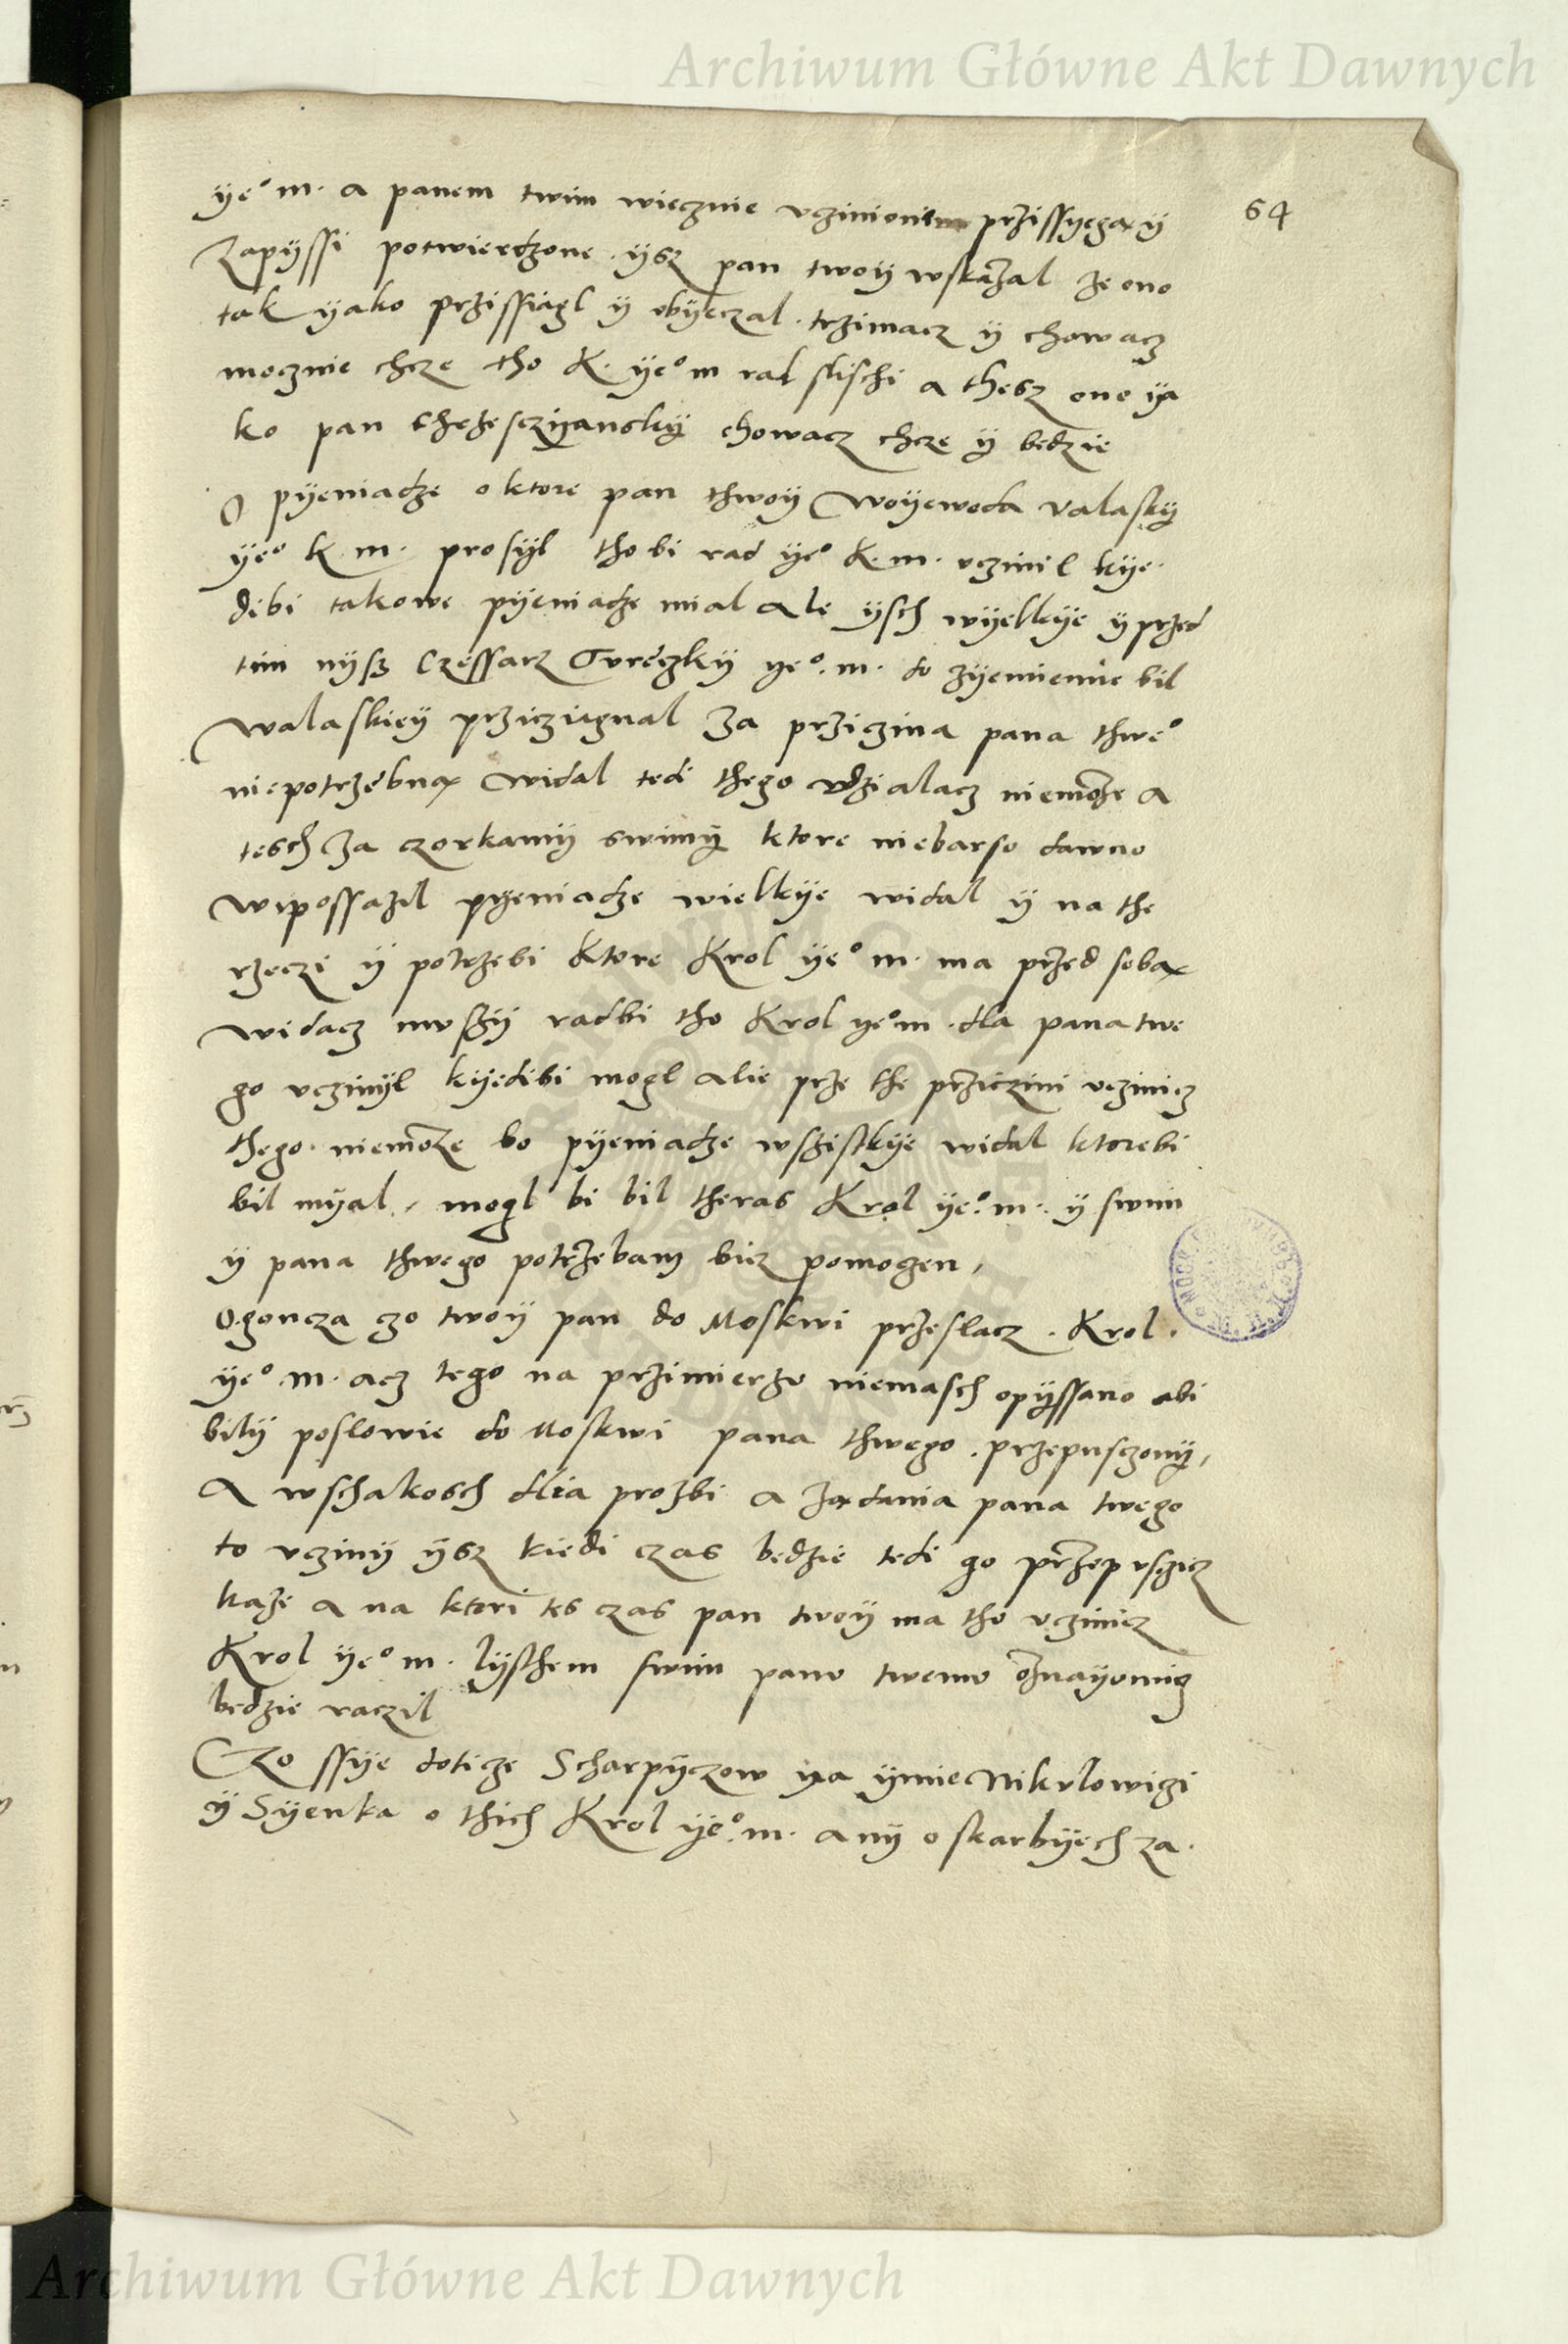 Archiwum Główne Akt Dawnych
64
ye° m. a panem twim wiecznie vczinionim przissyegą y
Zapyssi potwierdzone. ysz pan twoy wskazal ze ono
tak yako przissiągl y obyeczal. trzimacz y chowacz
mocznie chcze tho K. ye° m rad slischi a thesz ono ya
ko pan chrzesczyansky chowacz chcze y bedzie
O pyeniadze o ktore pan thwoy Woyewoda valasky
ye° k m. prosyl tho bi rad ye° K. m. vczinil kye.
dibi takowe pyeniadze mial ale ysch wyelkye y przed
tim nysz Czessarz Tureczky ye°. m. do zyemie bil
Walaskiey prziciągnal za przicziną pana thwe°
niepotrzebną widal tedi thego vdzialacz niemoże a
tesch za czorkamy swimy ktore niebarso dawno
wipossazil pyeniadze wielkye widal y na the
rzeczi y potrzebi ktore Krol ye° m. ma przed sobą
widacz mvszy radbi tho Krol ye° m. dla pana twe
go vczinyl kyedibi mogl alie prze the prziczini vczinicz
thego. niemoze bo pyeniadze wszistkye widal ktorebi
bil myal, mogl bi bil theras Krol ye°. m. y swim
y pana thwego potrzebam bicz pomoczen,
O goncza czo twoy pan do Moskwi przeslacz. Krol.
ye° m. acz tego na przimierzv niemasch opyssano abi
bily poslowie do Moskwi pana thwego. przepusczony,
A wschakosch dlia prozbi a ządania pana twego
to vcziny ysz kiedi czas bedzie tedi go przepvscicz
kaze a na ktori tes czas pan twoy ma tho vczinicz
Krol ye° m. lysthem swim panv twemv oznayomicz
bedzie raczil
Czo ssye doticze Scharpyczow na ymie Mikvlowiczi
y Syenka o thich Krol ye°. m. any o skarbyech za.
Archiwum Główne Akt Dawnych